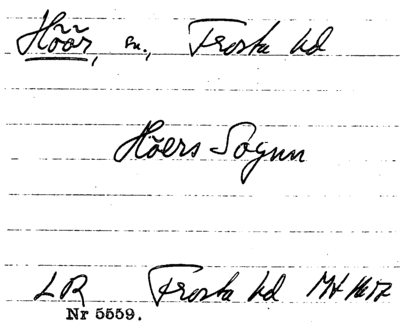 Höör, sn., Frosta hd
Höers Sognn
LR Frosta hd
Nr 5559.